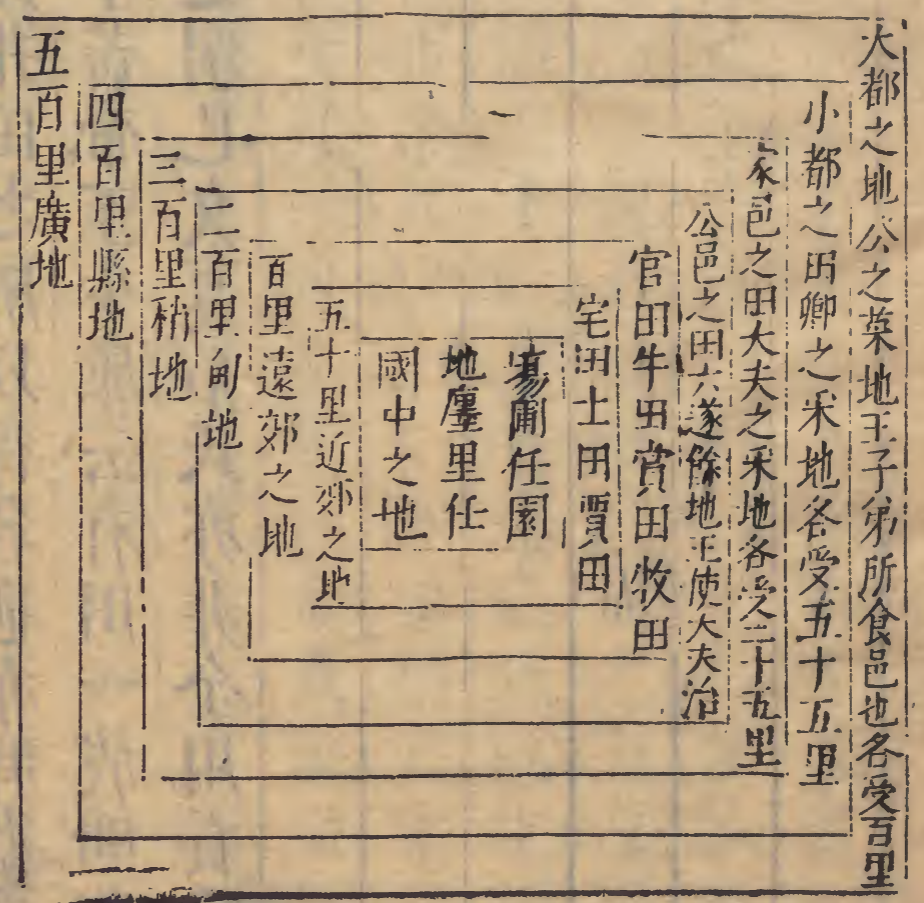 大都之地公之菜地王子弟所食邑也各受百里
小都之田卿之采地各受五十五里
家邑之田大夫之采地各受二十五里
公邑之田六遂餘地王使大夫治
官田牛田賞田牧田
宅田士田賈田
場圃任園
地廛里任
國中之地
五十里近郊之地
百里遠郊之地
二百里甸地
三百里稍地
四百里縣地
五百里廣地